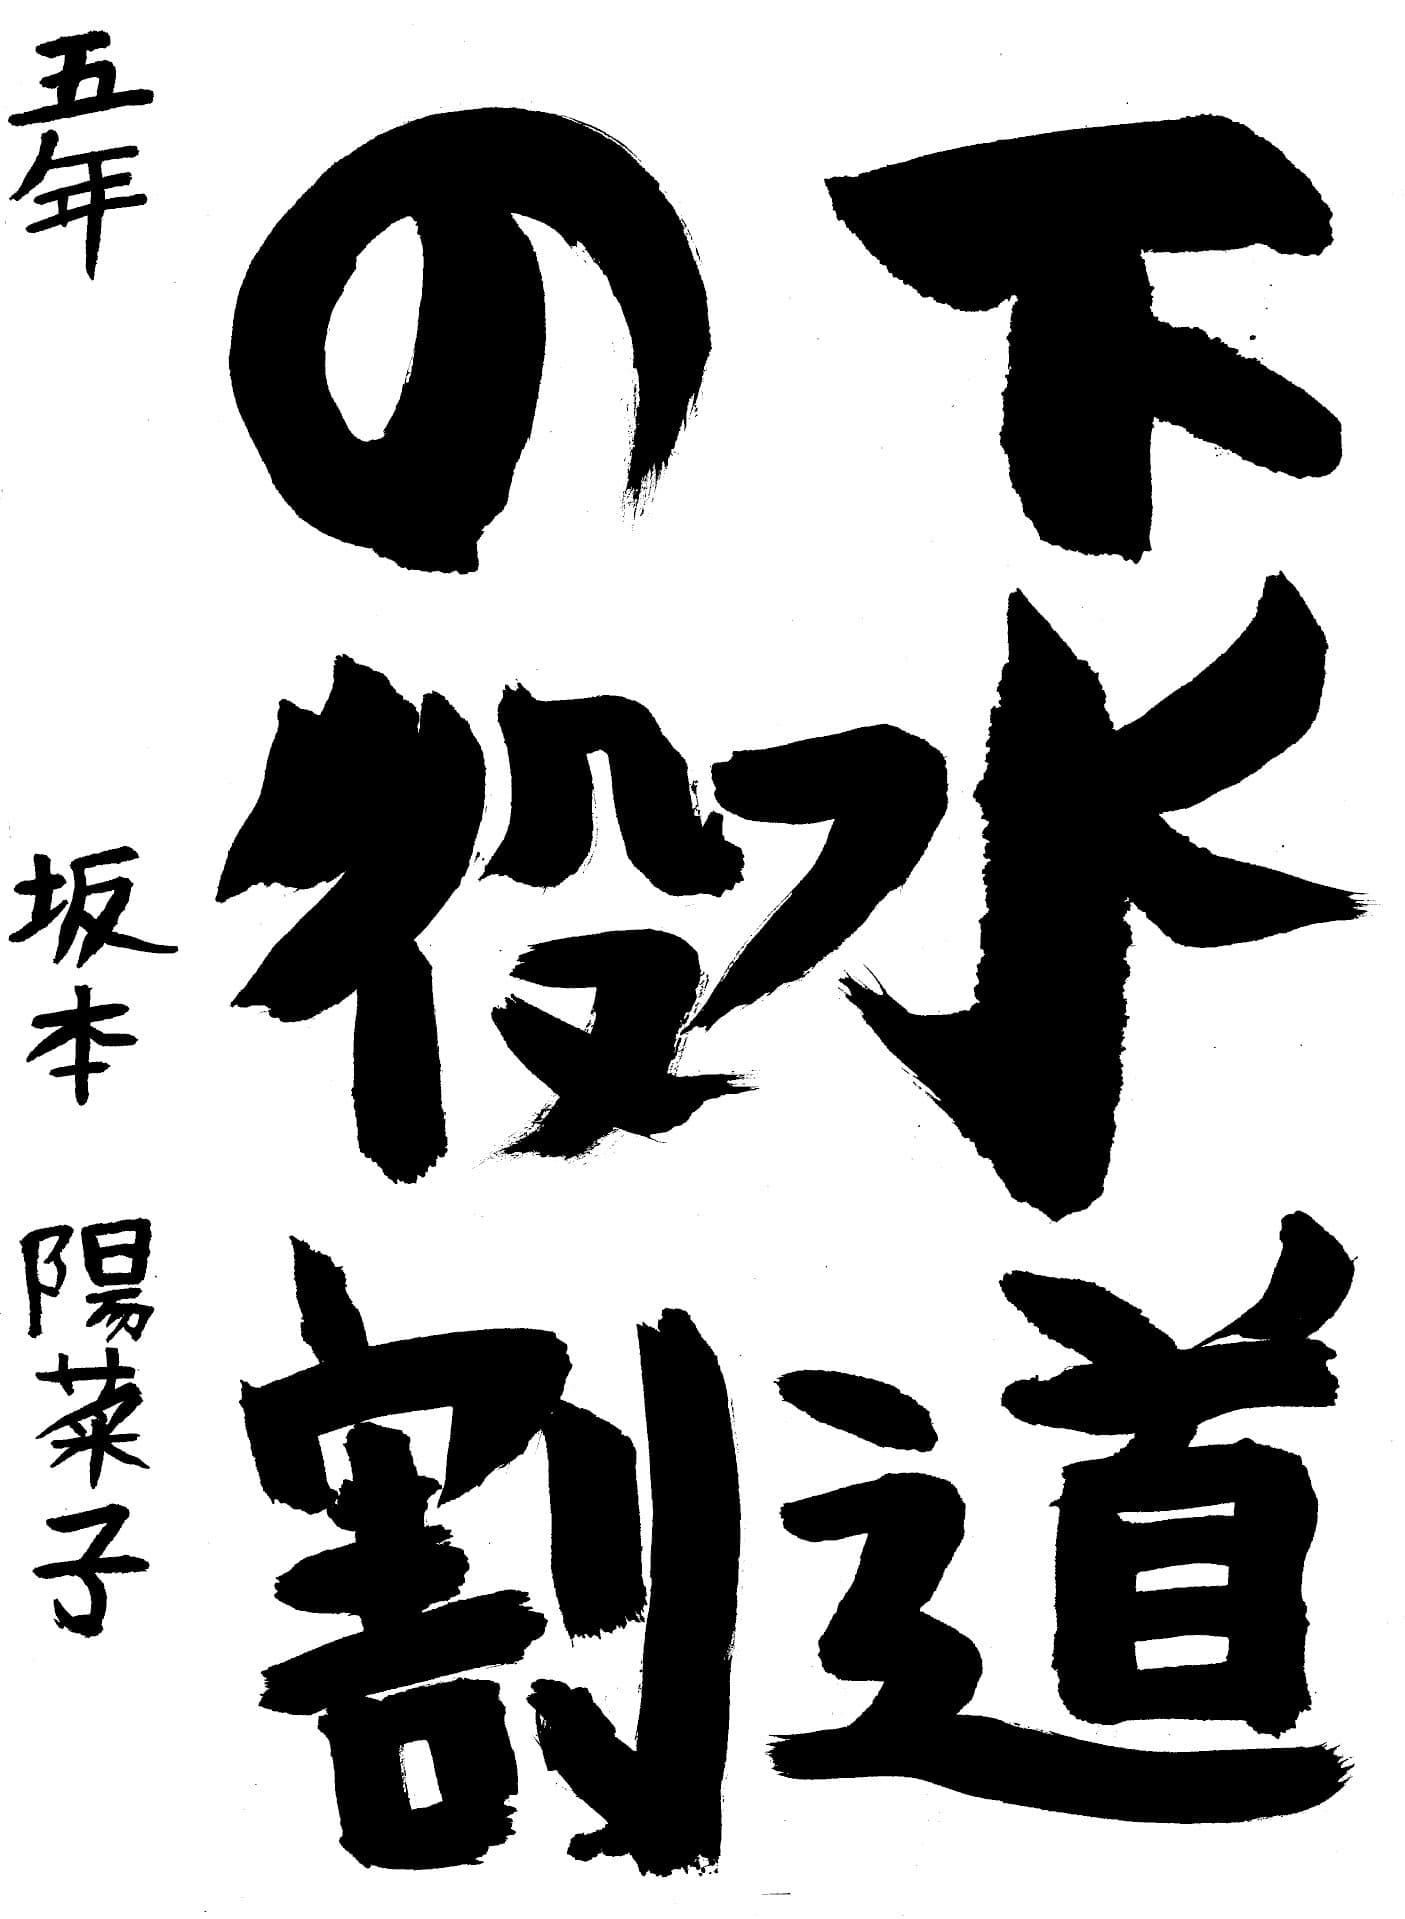 下水道
の役割
五年 坂本 陽菜子